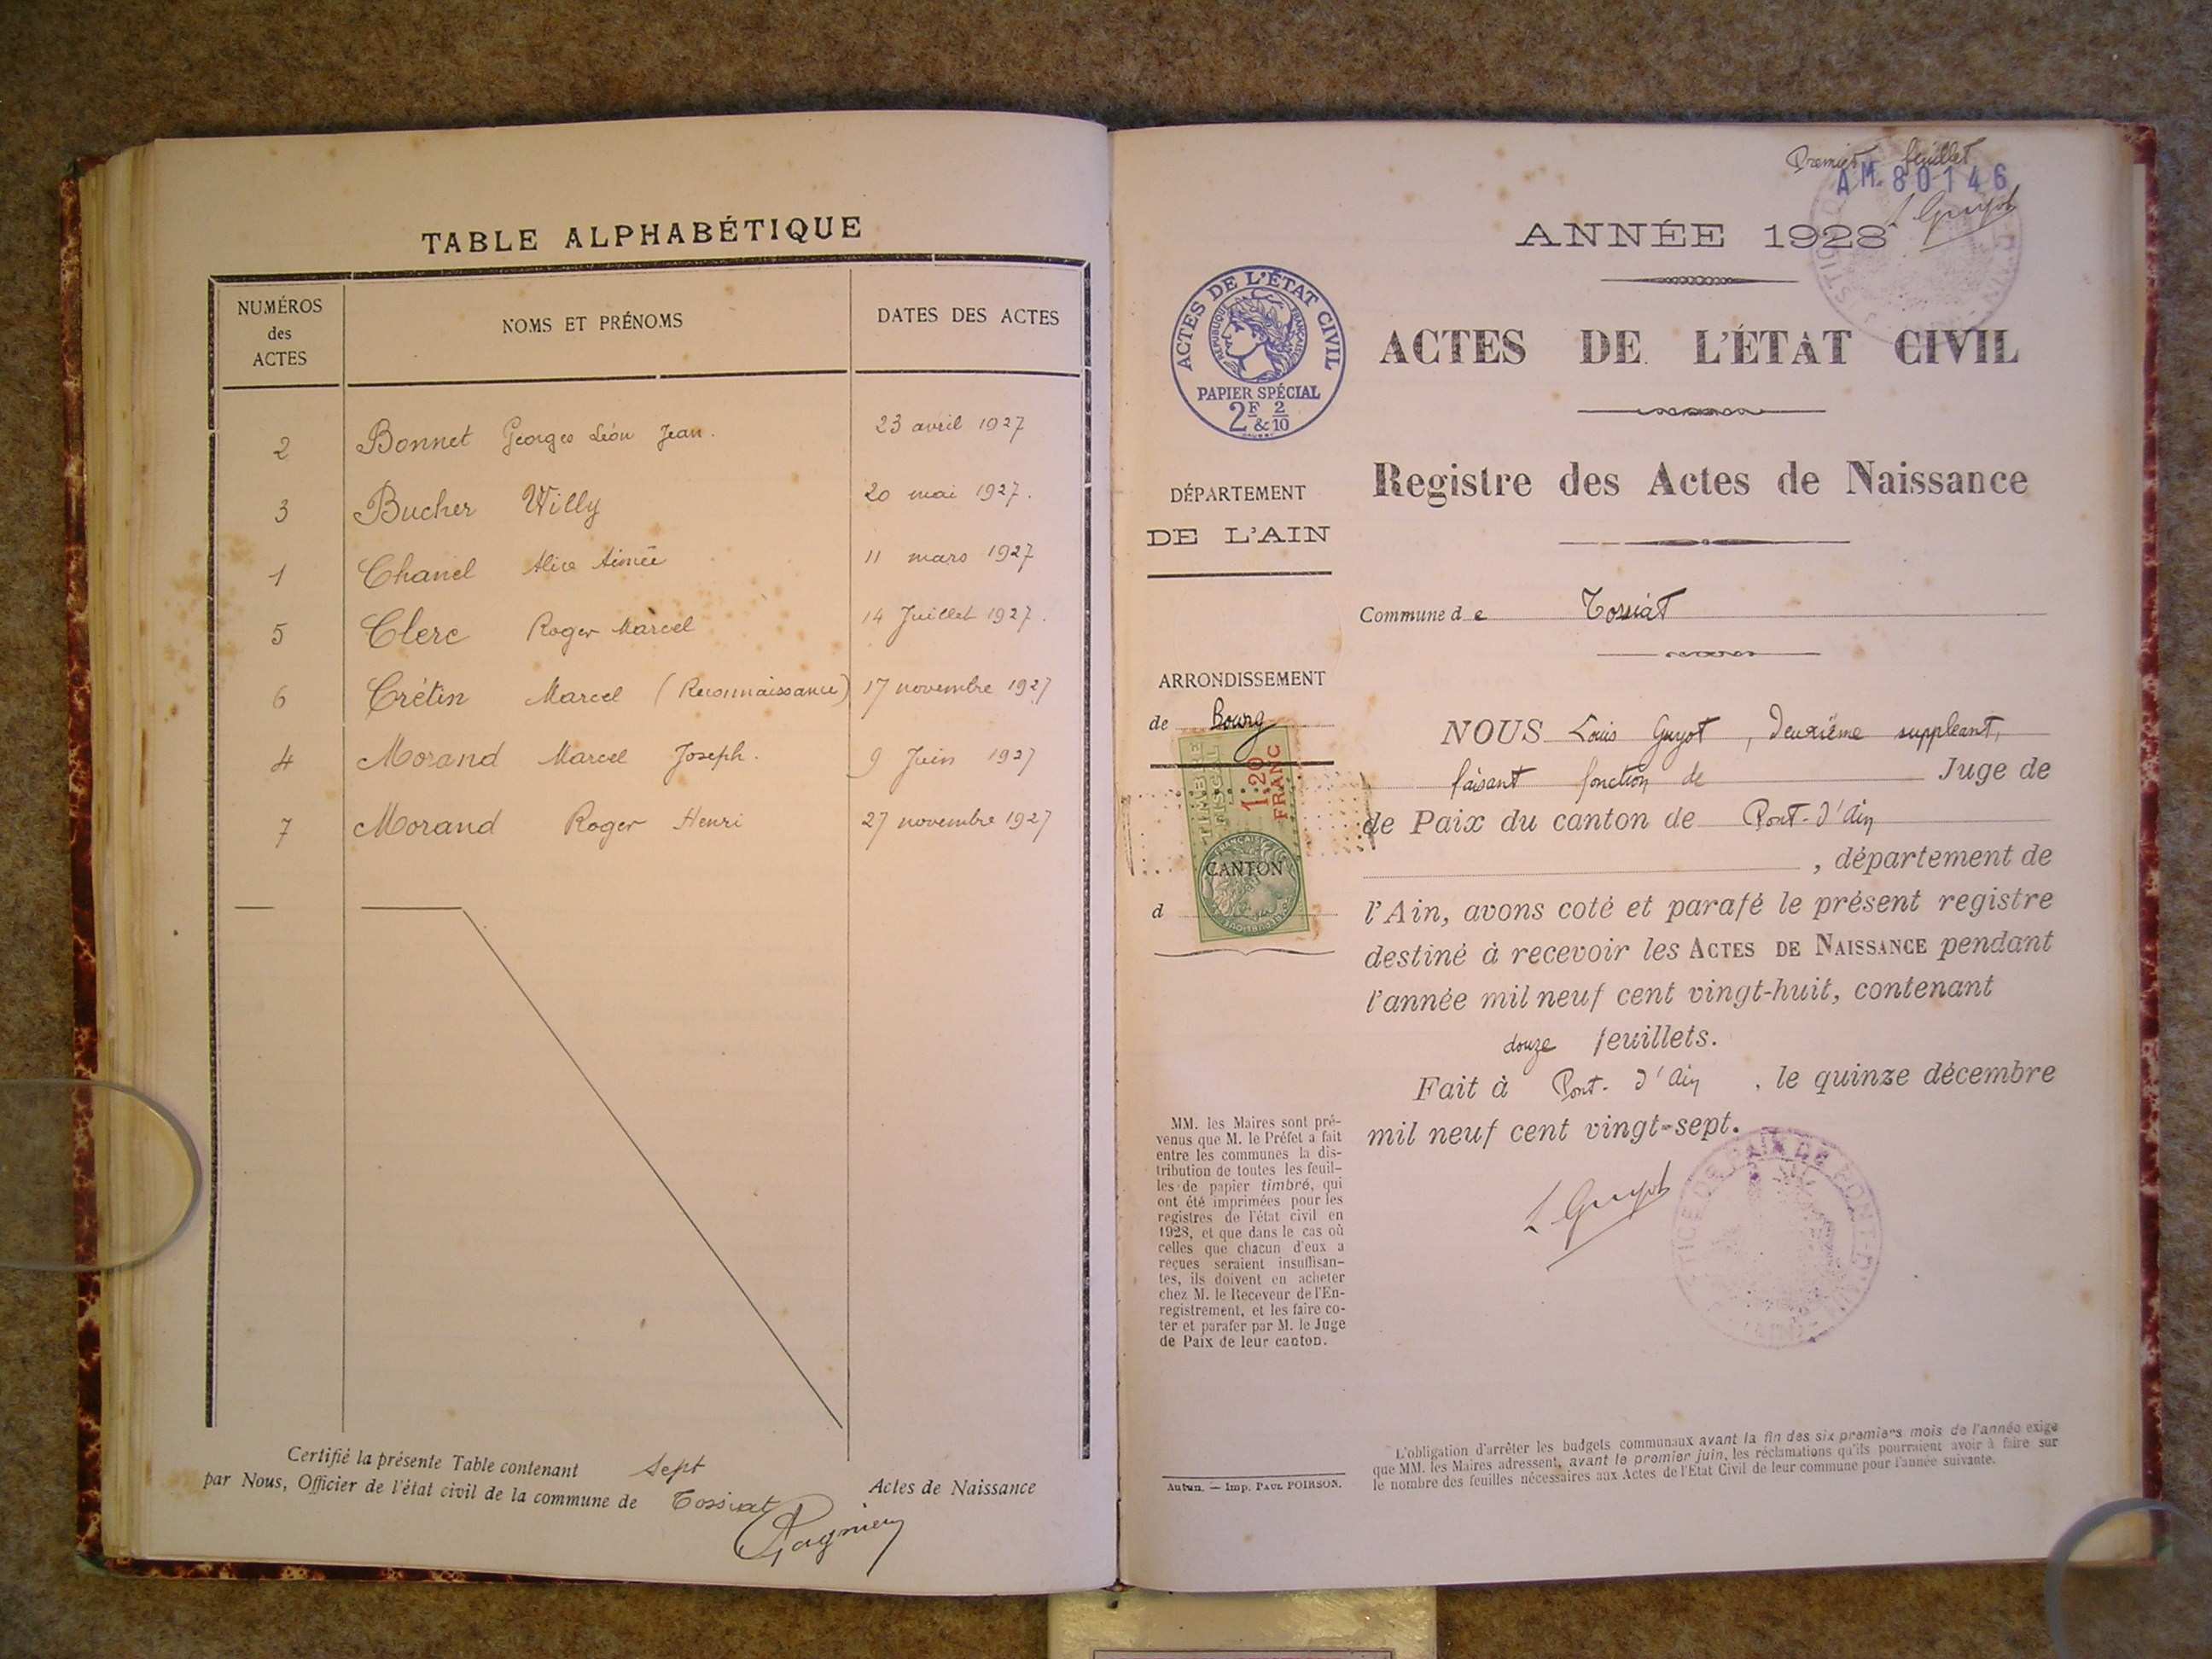 TABLE ALPHABÉTIQUE
NUMÉROS
des
ACTES
NOMS ET PRÉNOMS
DATES DES ACTES
2 Bonnet Georges Léon Jean. 23 avril 1927
3 Bucher Willy 20 mai 1927.
1 Chanel Alice Aimée 11 mars 1927
5 Clerc Roger Marcel 14 Juillet 1927.
6 Crétin Marcel (Reconnaissance) 17 novembre 1927
4 Morand Marcel Joseph. 9 Juin 1927
7 Morand Roger Henri 27 novembre 1927
Certifié la présente Table contenant sept Actes de Naissance
par Nous, Officier de l'état civil de la commune de Tossiat
Premier feuillet
AM. 80146
L Guyot
ANNÉE 1928
ACTES DE L'ÉTAT CIVIL
RÉPUBLIQUE FRANÇAISE
PAPIER SPÉCIAL
2F & 2/10
ACTES DE L'ÉTAT CIVIL
Registre des Actes de Naissance
DÉPARTEMENT
DE L'AIN
Commune de Tossiat
ARRONDISSEMENT
de Bourg
TIMBRE
FISCAL
1.20
FRANC
CANTON
d
NOUS Louis Guyot, deuxième suppleant,
faisant fonction de Juge de
de Paix du canton de Pont-d'Ain
, département de
l'Ain, avons coté et parafé le présent registre
destiné à recevoir les ACTES DE NAISSANCE pendant
l'année mil neuf cent vingt-huit, contenant
douze feuillets.
Fait à Pont-d'Ain, le quinze décembre
mil neuf cent vingt-sept.
L Guyot
JUSTICE DE PAIX DE PONT-D'AIN
MM. les Maires sont pré-
venus que M. le Préfet a fait
entre les communes la dis-
tribution de toutes les feuil-
les de papier timbré, qui
ont été imprimées pour les
registres de l'état civil en
1928, et que dans le cas où
celles que chacun d'eux a
reçues seraient insuffisan-
tes, ils doivent en acheter
chez M. le Receveur de l'En-
registrement, et les faire co-
ter et parafer par M. le Juge
de Paix de leur canton.
Autun. — Imp. PAUL POIRSON.
L'obligation d'arrêter les budgets communaux avant la fin des six premiers mois de l'année exige
que MM. les Maires adressent, avant le premier juin, les réclamations qu'ils pourraient avoir à faire sur
le nombre des feuilles nécessaires aux Actes de l'Etat Civil de leur commune pour l'année suivante.